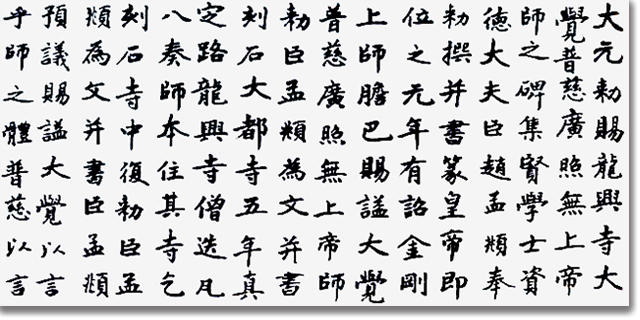 大元勑賜龍興寺大
覺普慈廣照無上帝
師之碑集賢學士資
德大夫臣趙孟頫奉
勑撰并書篆皇帝即
位之元年有詔金剛
上師膽巴賜謚大覺
普慈廣照無上帝師
勑臣孟頫為文并書
刻石大都寺五年真
定路龍興寺僧迭凡
八奏師本住其寺乞
刻石寺中復勑臣孟
頫為文并書臣孟頫
預議賜謚大覺以言
乎師之體普慈以言